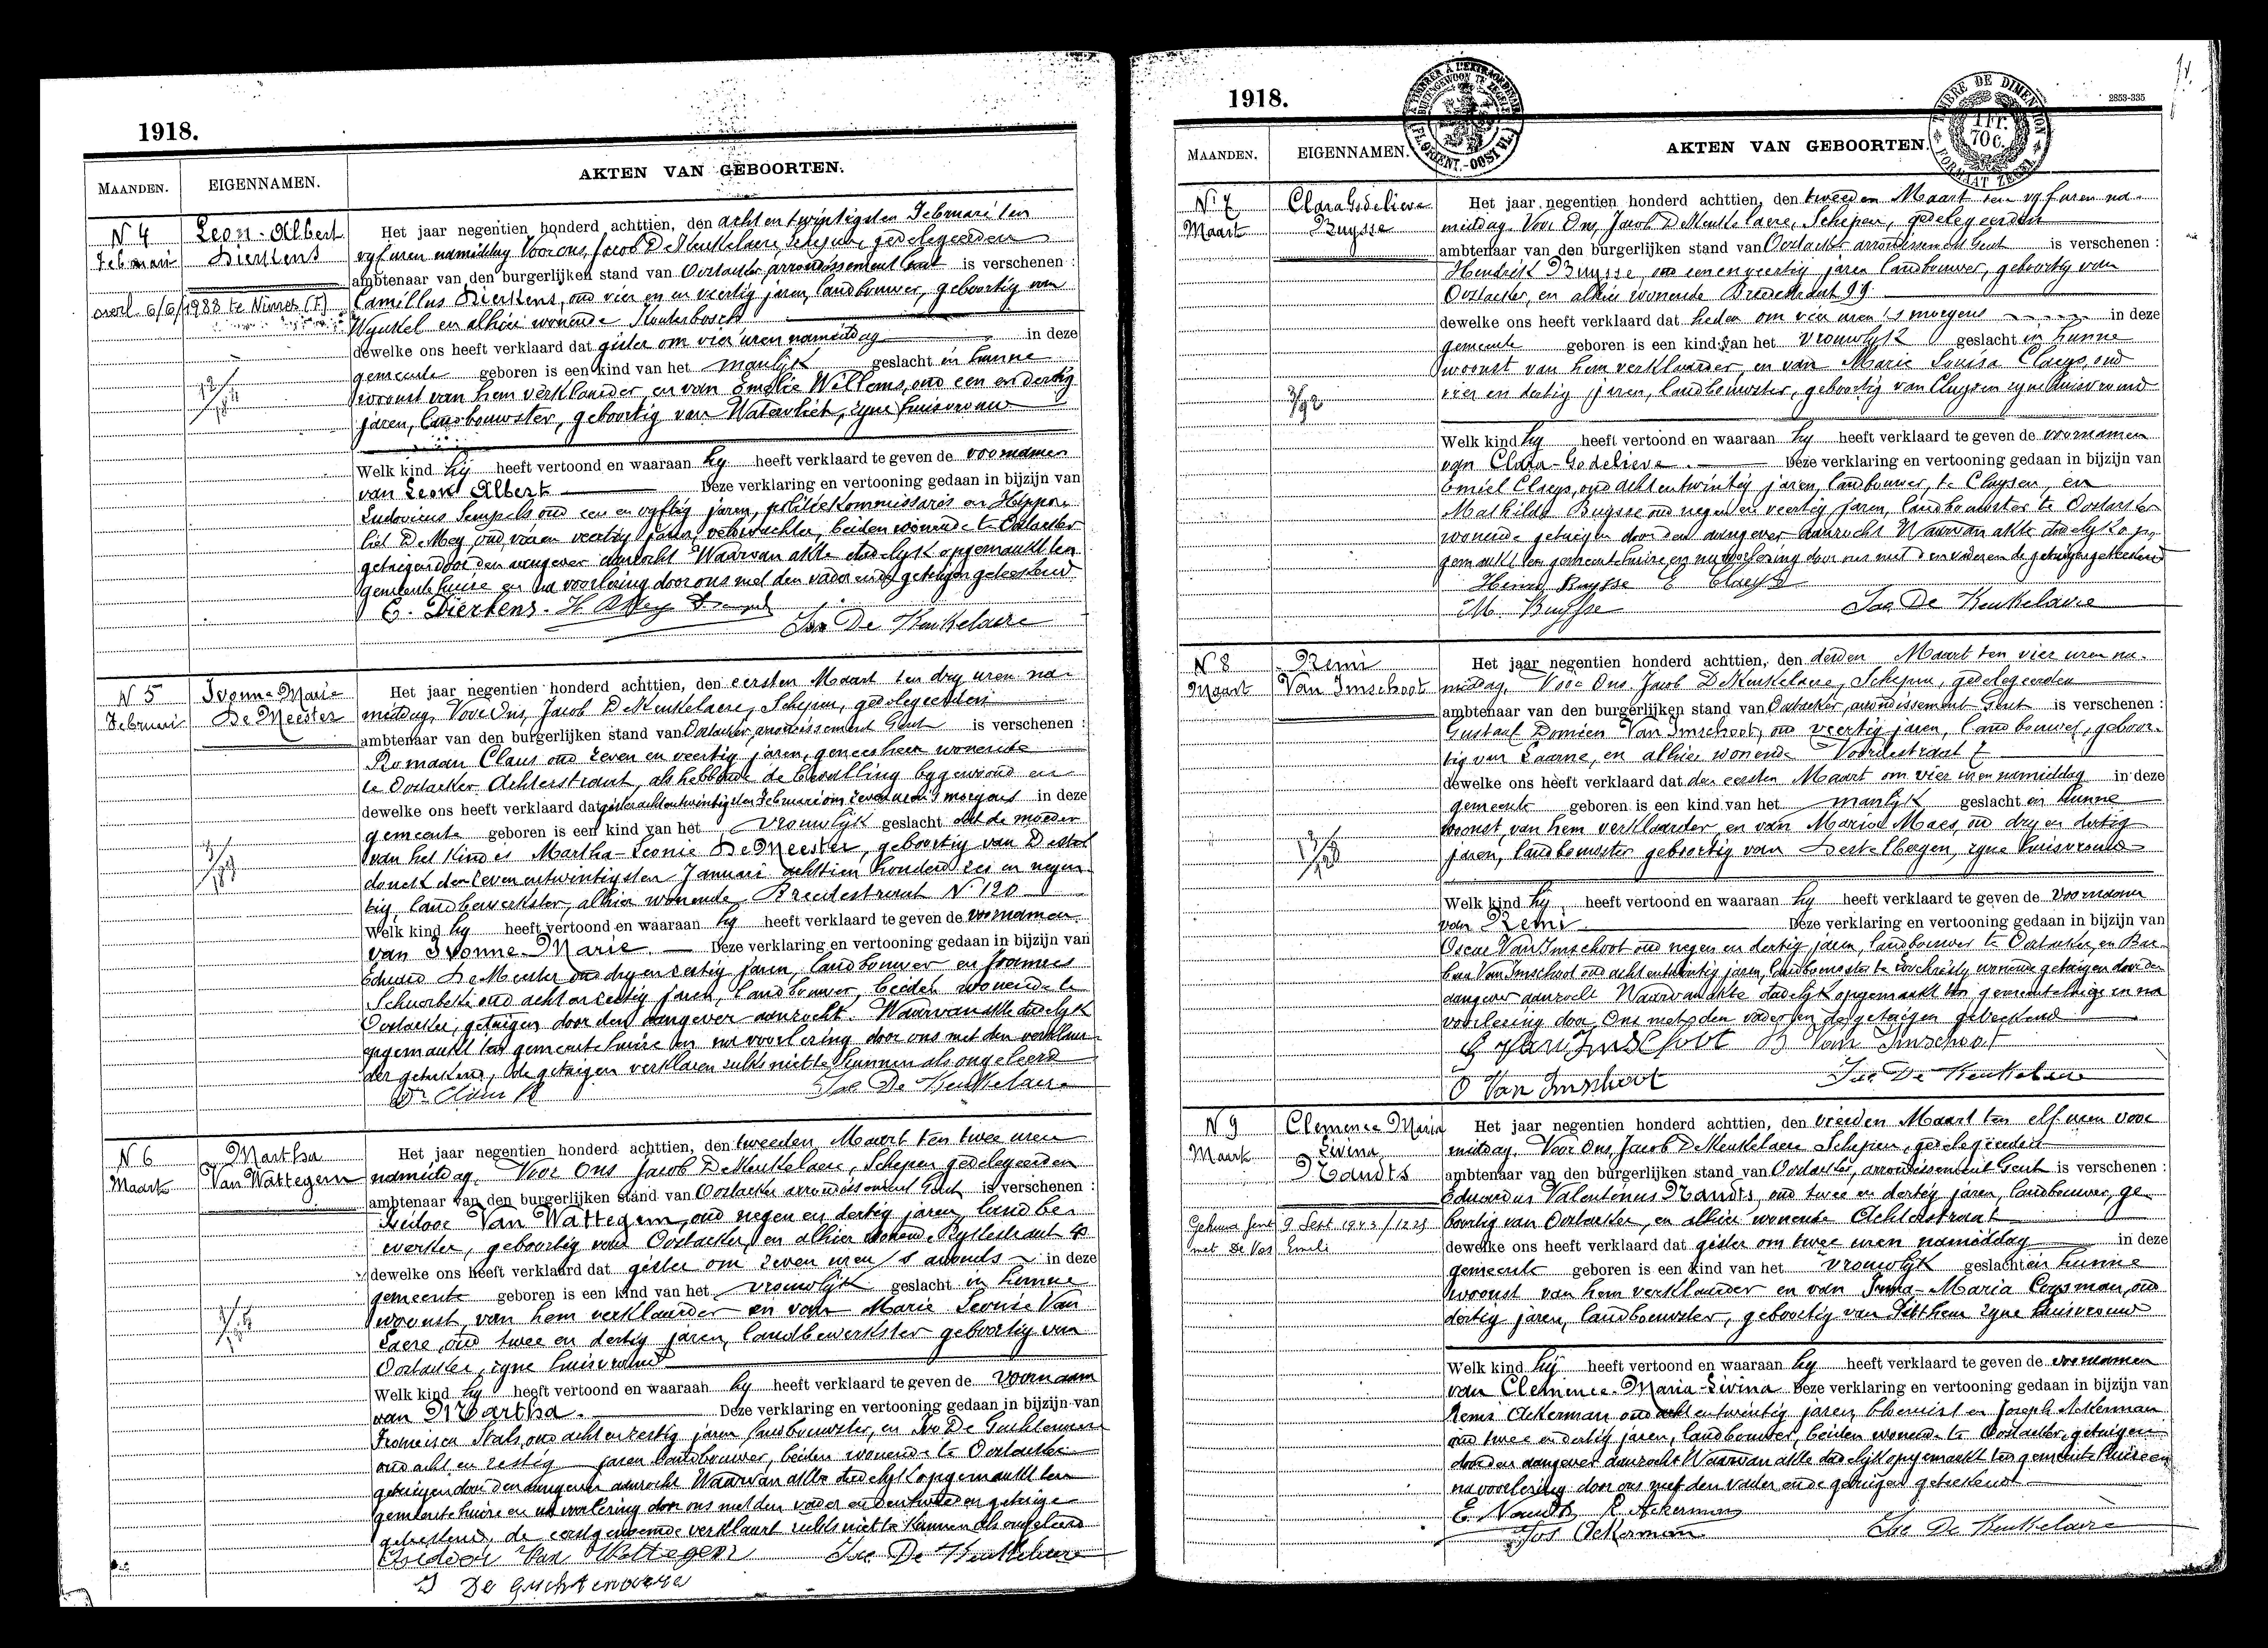 1918.
MAANDEN. EIGENNAMEN. AKTEN VAN GEBOORTEN.
N 4 Leon-Albert Het jaar negentien honderd achttien, den acht en twintigsten Februari ten
Februari Dierkens vyf uren namiddag Voor ons, Jacob De Keukelaere, Schepen, gedelegeerden
ambtenaar van den burgerlijken stand van Oostacker arrondissement Gent is verschenen :
overl. 6/6/1988 te Camillus Dierkens, oud vier en veertig jaren, landbouwer, geboortig van
Wynkel en alhier wonende
dewelke ons heeft verklaard dat gister om vier uren namiddag in deze
gemeente geboren is een kind van het manlyk geslacht in hunne
woonst van hem verklaarder en van Emelie Willems, oud een en dertig
jaren, landbouwster, geboortig van Watervliet, zyne huisvrouw
Welk kind hy heeft vertoond en waaraan hy heeft verklaard te geven de voornamen
van Leon Albert Deze verklaring en vertooning gedaan in bijzijn van
Ludovicus Sempels oud een en vyftig jaren, politiekommissaris en Hippo-
liet De Mey, oud vier en veertig jaren, veldwachter, beiden wonende te Oostacker
getuigen door den aangever aanzocht Waarvan akte dadelyk opgemaakt ten
gemeentehuize en na voorlezing door ons met den vader en de getuigen geteekend
C. Dierkens. H DMey
Jac De Keukelaere
N 5 Ivonne Marie Het jaar negentien honderd achttien, den eersten Maart ten dry uren na-
Februari De Meester middag, Voor Ons, Jacob De Keukelaere, Schepen, gedelegeerden
ambtenaar van den burgerlijken stand van Oostacker, arrondissement Gent is verschenen :
Romaan Claus oud zeven en veertig jaren, geneesheer wonende
te Oostacker Achterstraat, als hebbende de bevalling bygewoond en
dewelke ons heeft verklaard dat gister achtentwintigsten Februari om zeven uren 's morgens in deze
gemeente geboren is een kind van het vrouwlyk geslacht dat de moeder
van het kind is Martha-Leonie De Meester, geboortig van Destel
donck den zeven entwintigsten Januari achttien honderd zes en negen-
tig, landbewerkster, alhier wonende Breedestraat N. 120
Welk kind hy heeft vertoond en waaraan hy heeft verklaard te geven de voornamen
van Ivonne-Marie. Deze verklaring en vertooning gedaan in bijzijn van
Eduard De Meester oud dry en zestig jaren, landbouwer en
oud acht en zestig jaren, landbouwer, beiden wonende te
Oostacker, getuigen door den aangever aanzocht. Waarvan akte dadelyk
opgemaakt ten gemeentehuize en na voorlezing door ons met den verklaar-
der geteekend, de getuigen verklaren zulks niet te kunnen als ongeleerd
Dr Claus R Jac De Keukelaere
N 6 Martha Het jaar negentien honderd achttien, den tweeden Maart ten twee uren
Maart Van Wattegem namiddag, Voor Ons Jacob De Keukelaere, Schepen gedelegeerden
ambtenaar van den burgerlijken stand van Oostacker arrondissement Gent is verschenen :
Isidoor Van Wattegem, oud negen en dertig jaren, landbe-
werker, geboortig van Oostacker, en alhier wonende
dewelke ons heeft verklaard dat gister om zeven uren 's avonds in deze
gemeente geboren is een kind van het vrouwlyk geslacht in hunne
woonst, van hem verklaarder en van Marie Leonie Van
Laere, oud twee en dertig jaren, landbewerkster geboortig van
Oostacker, zyne huisvrouw
Welk kind hy heeft vertoond en waaraan hy heeft verklaard te geven de voornaam
van Martha. Deze verklaring en vertooning gedaan in bijzijn van
Francisca Stals, oud acht en zestig jaren landbouwster, en Ivo De Guchteneere
oud acht en zestig jaren landbouwer, beiden wonende te Oostacker
getuigen door den aangever aanzocht Waarvan akte dadelyk opgemaakt ten
gemeentehuize en na voorlezing door ons met den vader en den tweeden getuige
geteekend, de eerstgenoemde verklaart zulks niet te kunnen als ongeleerd
Isidoor Van Wattegem Jac De Keukelaere
I De Guchteneere
1918.
2853-335
MAANDEN. EIGENNAMEN. AKTEN VAN GEBOORTEN.
N. 7 Clara Godelieve Het jaar negentien honderd achttien, den tweeden Maart ten vyf uren na-
Maart Buysse middag. Voor Ons, Jacob De Keukelaere, Schepen, gedelegeerden
ambtenaar van den burgerlijken stand van Oostacker arrondissement Gent is verschenen :
Hendrik Buysse, oud een en veertig jaren landbouwer, geboortig van
Oostacker, en alhier wonende Breedestraat 99
dewelke ons heeft verklaard dat heden om vier uren 's morgens in deze
gemeente geboren is een kind van het vrouwlyk geslacht in hunne
woonst van hem verklaarder, en van Marie Louisa Claeys, oud
vier en dertig jaren, landbouwster, geboortig van Cluysen zyne huisvrouw
3/92
Welk kind hy heeft vertoond en waaraan hy heeft verklaard te geven de voornamen
van Clara-Godelieve. Deze verklaring en vertooning gedaan in bijzijn van
Emiel Claeys, oud acht en twintig jaren, landbouwer, te Cluysen, en
Mathilde Buysse oud negen en veertig jaren, landbouwster te Oostacker
wonende getuigen door den aangever aanzocht Waarvan akte dadelyk op-
gemaakt ten gemeentehuize en na voorlezing door ons met den vader en de getuigen geteekend
Henri Buysse E Claeys
M. Buysse Jac De Keukelaere
N 8 Remi Het jaar negentien honderd achttien, den derden Maart ten vier uren na-
Maart Van Imschoot middag, Voor Ons Jacob De Keukelaere, Schepen, gedelegeerden
ambtenaar van den burgerlijken stand van Oostacker, arrondissement Gent is verschenen :
Gustaaf Domien Van Imschoot, oud veertig jaren, landbouwer, geboor-
tig van Laarne, en alhier wonende Voordestraat 7
dewelke ons heeft verklaard dat den eersten Maart om vier uren namiddag in deze
gemeente geboren is een kind van het manlyk geslacht in hunne
woonst, van hem verklaarder, en van Maria Maes, oud dry en dertig
jaren, landbouwster geboortig van Destelbergen, zyne huisvrouw
Welk kind hy heeft vertoond en waaraan hy heeft verklaard te geven de voornaam
van Remi Deze verklaring en vertooning gedaan in bijzijn van
Oscar Van Imschoot oud negen en dertig jaren, landbouwer te Oostacker, en Bar-
bara Van Imschoot oud acht entwintig jaren, landbouwster te Loochristy wonende getuigen door den
aangever aanzocht Waarvan akte dadelyk opgemaakt ten gemeentehuize en na
voorlezing door Ons met den vader en de getuigen geteekend
G Van Imschoot B Van Imschoot
O Van Imschoot Jac De Keukelaere
N 9 Clemence Maria Het jaar negentien honderd achttien, den vierden Maart ten elf uren voor
Maart Livina middag. Voor Ons, Jacob De Keukelaere Schepen, gedelegeerden
Naudts ambtenaar van den burgerlijken stand van Oostacker, arrondissement Gent is verschenen :
Eduardus Valentinus Naudts, oud twee en dertig jaren, landbouwer, ge-
Gehuwd Gent 9 Sept 1943/1225 boortig van Oostacker, en alhier wonende Achterstraat
met De Vos Emeli dewelke ons heeft verklaard dat gister om twee uren namiddag in deze
gemeente geboren is een kind van het vrouwlyk geslacht in hunne
woonst van hem verklaarder en van Irma-Maria Cogsman, oud
dertig jaren, landbouwster, geboortig van Pitthem zyne huisvrouw
Welk kind hy heeft vertoond en waaraan hy heeft verklaard te geven de voornamen
van Clemence-Maria-Livina Deze verklaring en vertooning gedaan in bijzijn van
Remi Ackerman oud acht en twintig jaren, bloemist en Joseph Ackerman
oud twee en dertig jaren, landbouwer, beiden wonende te Oostacker, getuigen
door den aangever aanzocht Waarvan akte dadelyk opgemaakt ten gemeentehuize en
na voorlezing door ons met den vader en de getuigen geteekend
E. Naudts R. Ackerman
Jos Ackerman Jac De Keukelaere